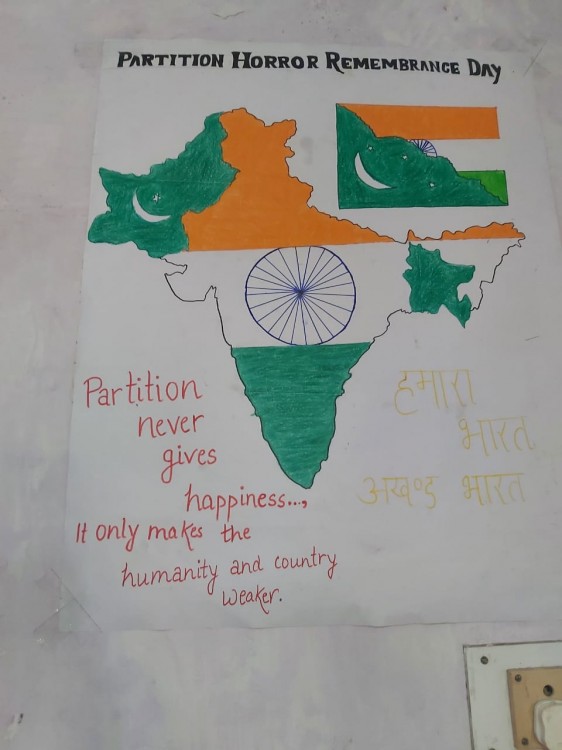 PARTITION HORROR REMEMBRANCE DAY
Partition
never
gives
happiness...,
It only makes the
humanity and country
weaker.
हमारा
भारत
अखण्ड भारत